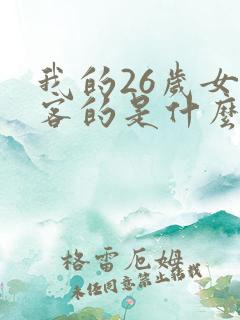 我的26歲女
客的是什麼
格雷厄姆
未任同意禁止转载